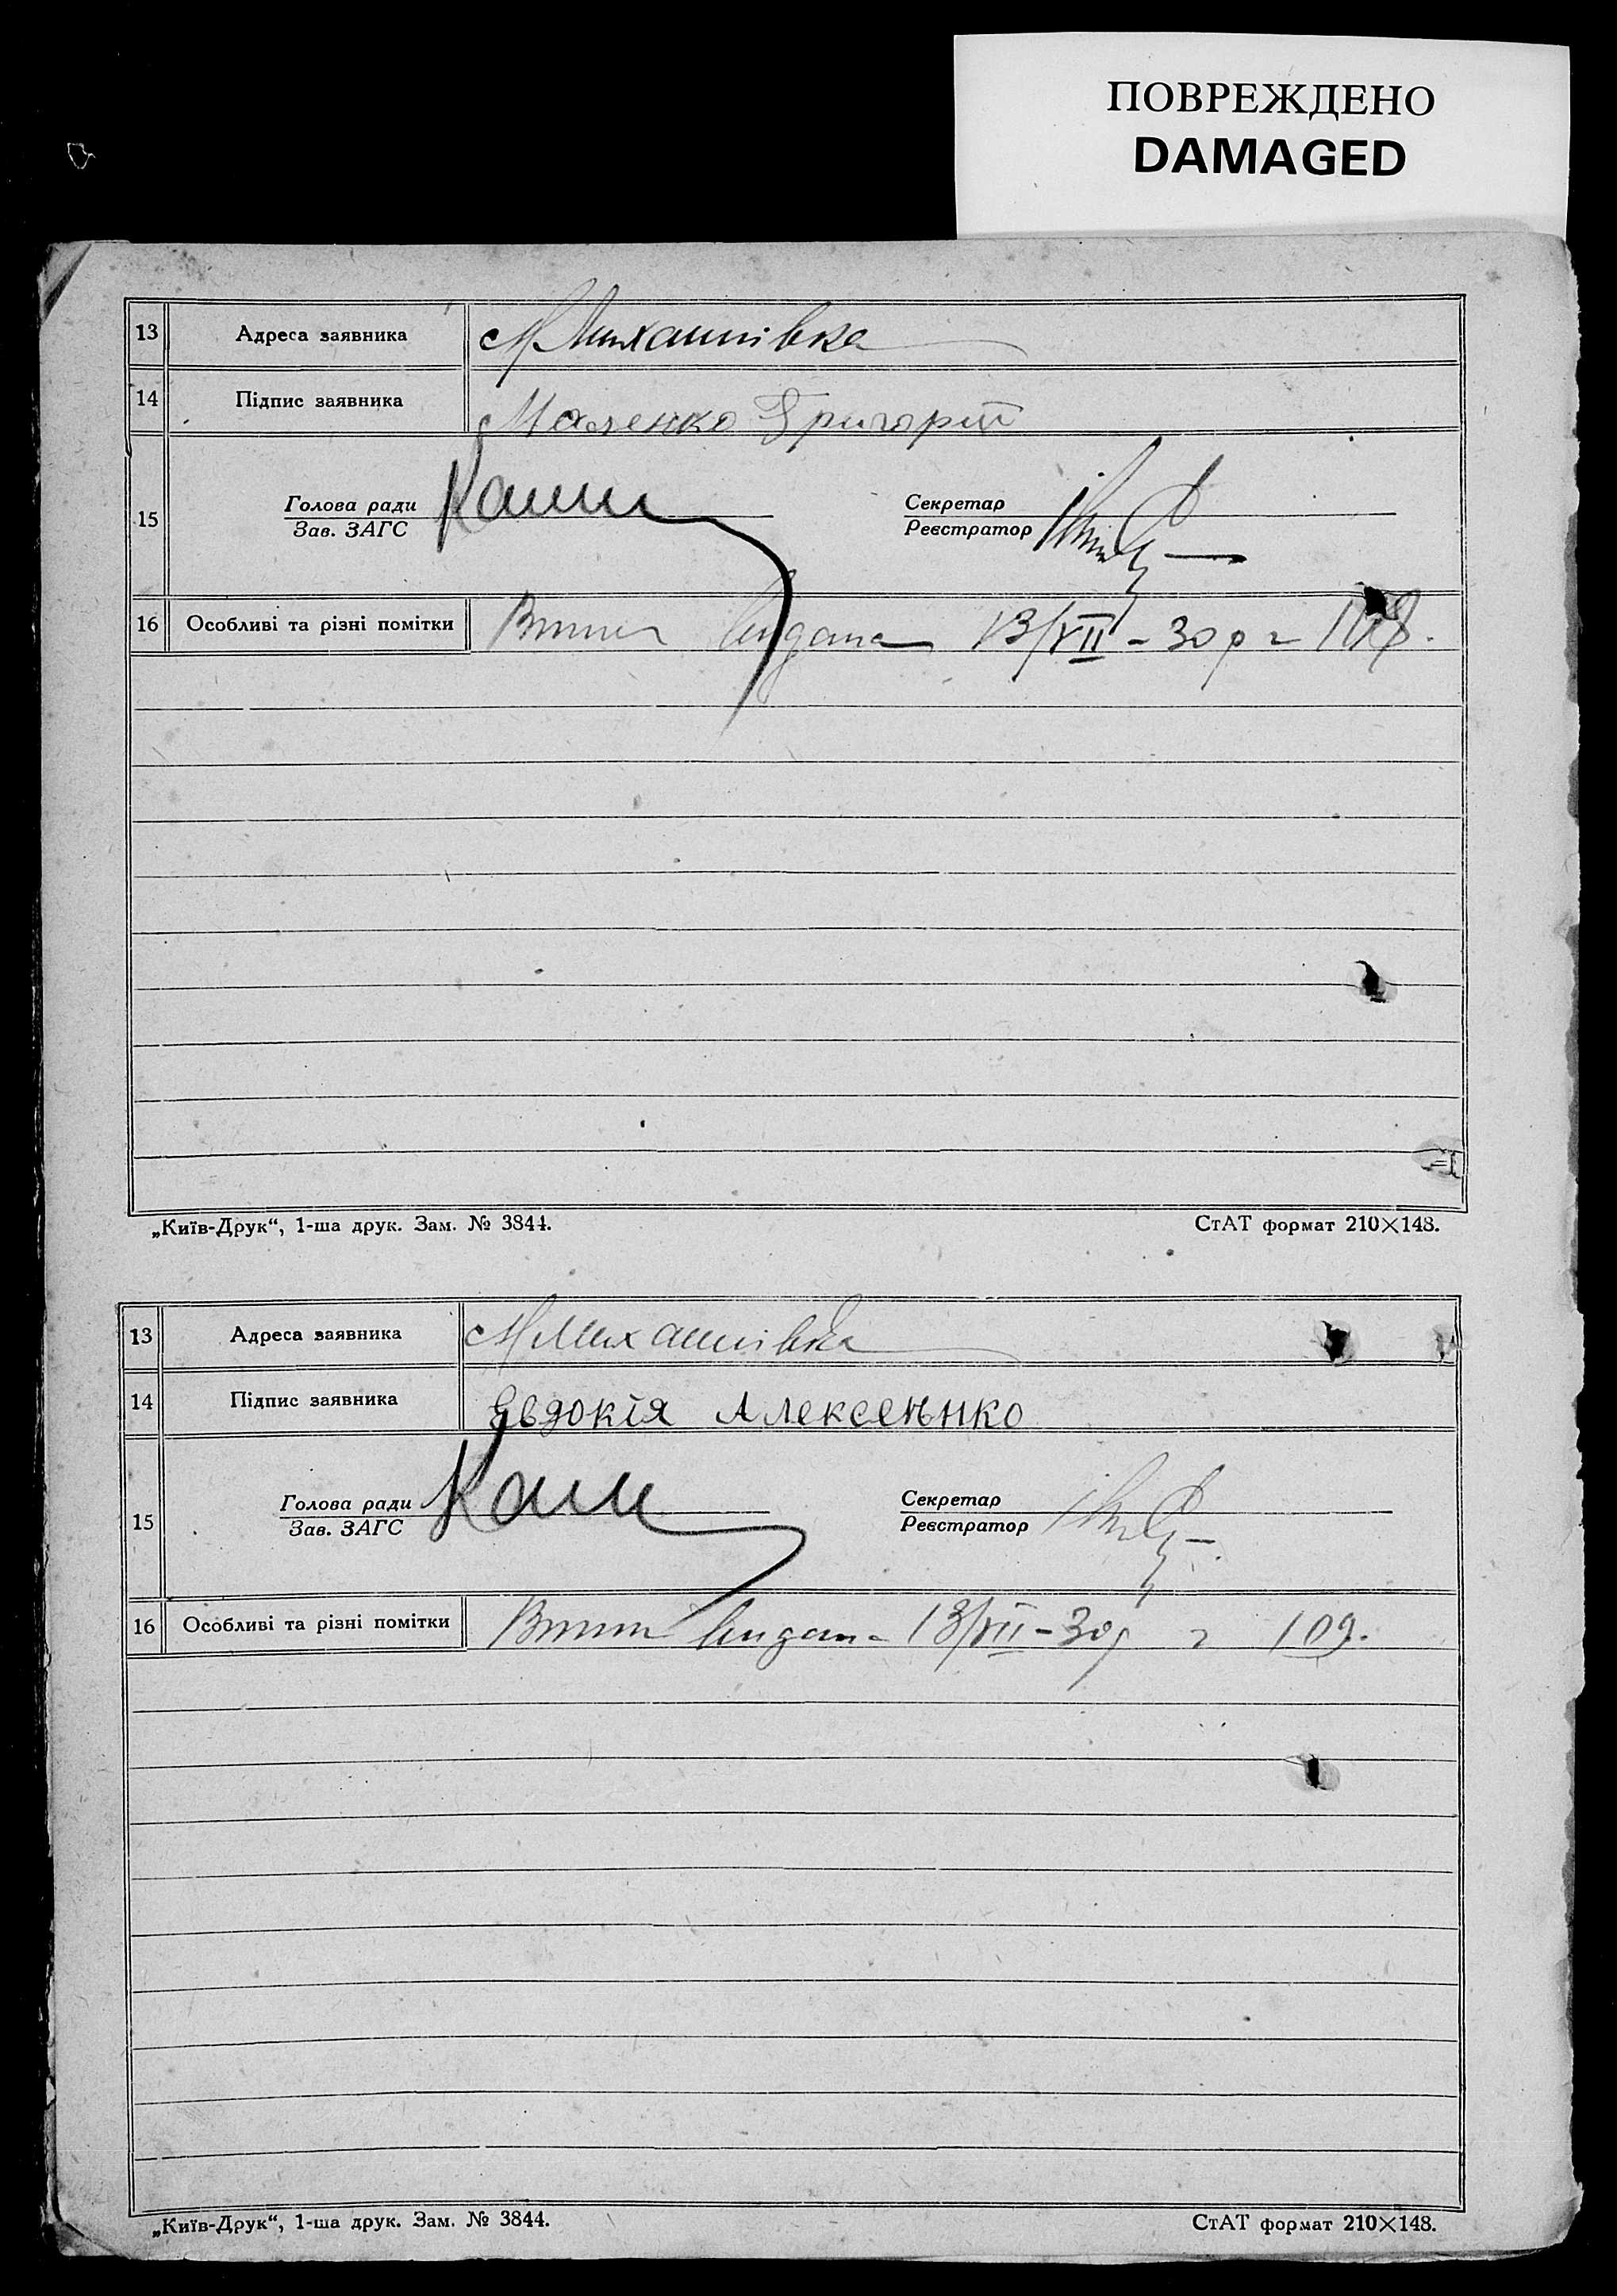 ПОВРЕЖДЕНО
DAMAGED
13 Адреса заявника М Михайлівка
14 Підпис заявника Маленко Григорій
15 Голова ради Секретар
Зав. ЗАГС Реєстратор
16 Особливі та різні помітки видана 13/VII – 30 р 108.
„Київ-Друк“, 1-ша друк. Зам. № 3844. СтАТ формат 210×148.
13 Адреса заявника М Михайлівка
14 Підпис заявника Євдокія Алексенько
15 Голова ради Секретар
Зав. ЗАГС Реєстратор
16 Особливі та різні помітки видана 13/VII – 30 р 109.
„Київ-Друк“, 1-ша друк. Зам. № 3844. СтАТ формат 210×148.